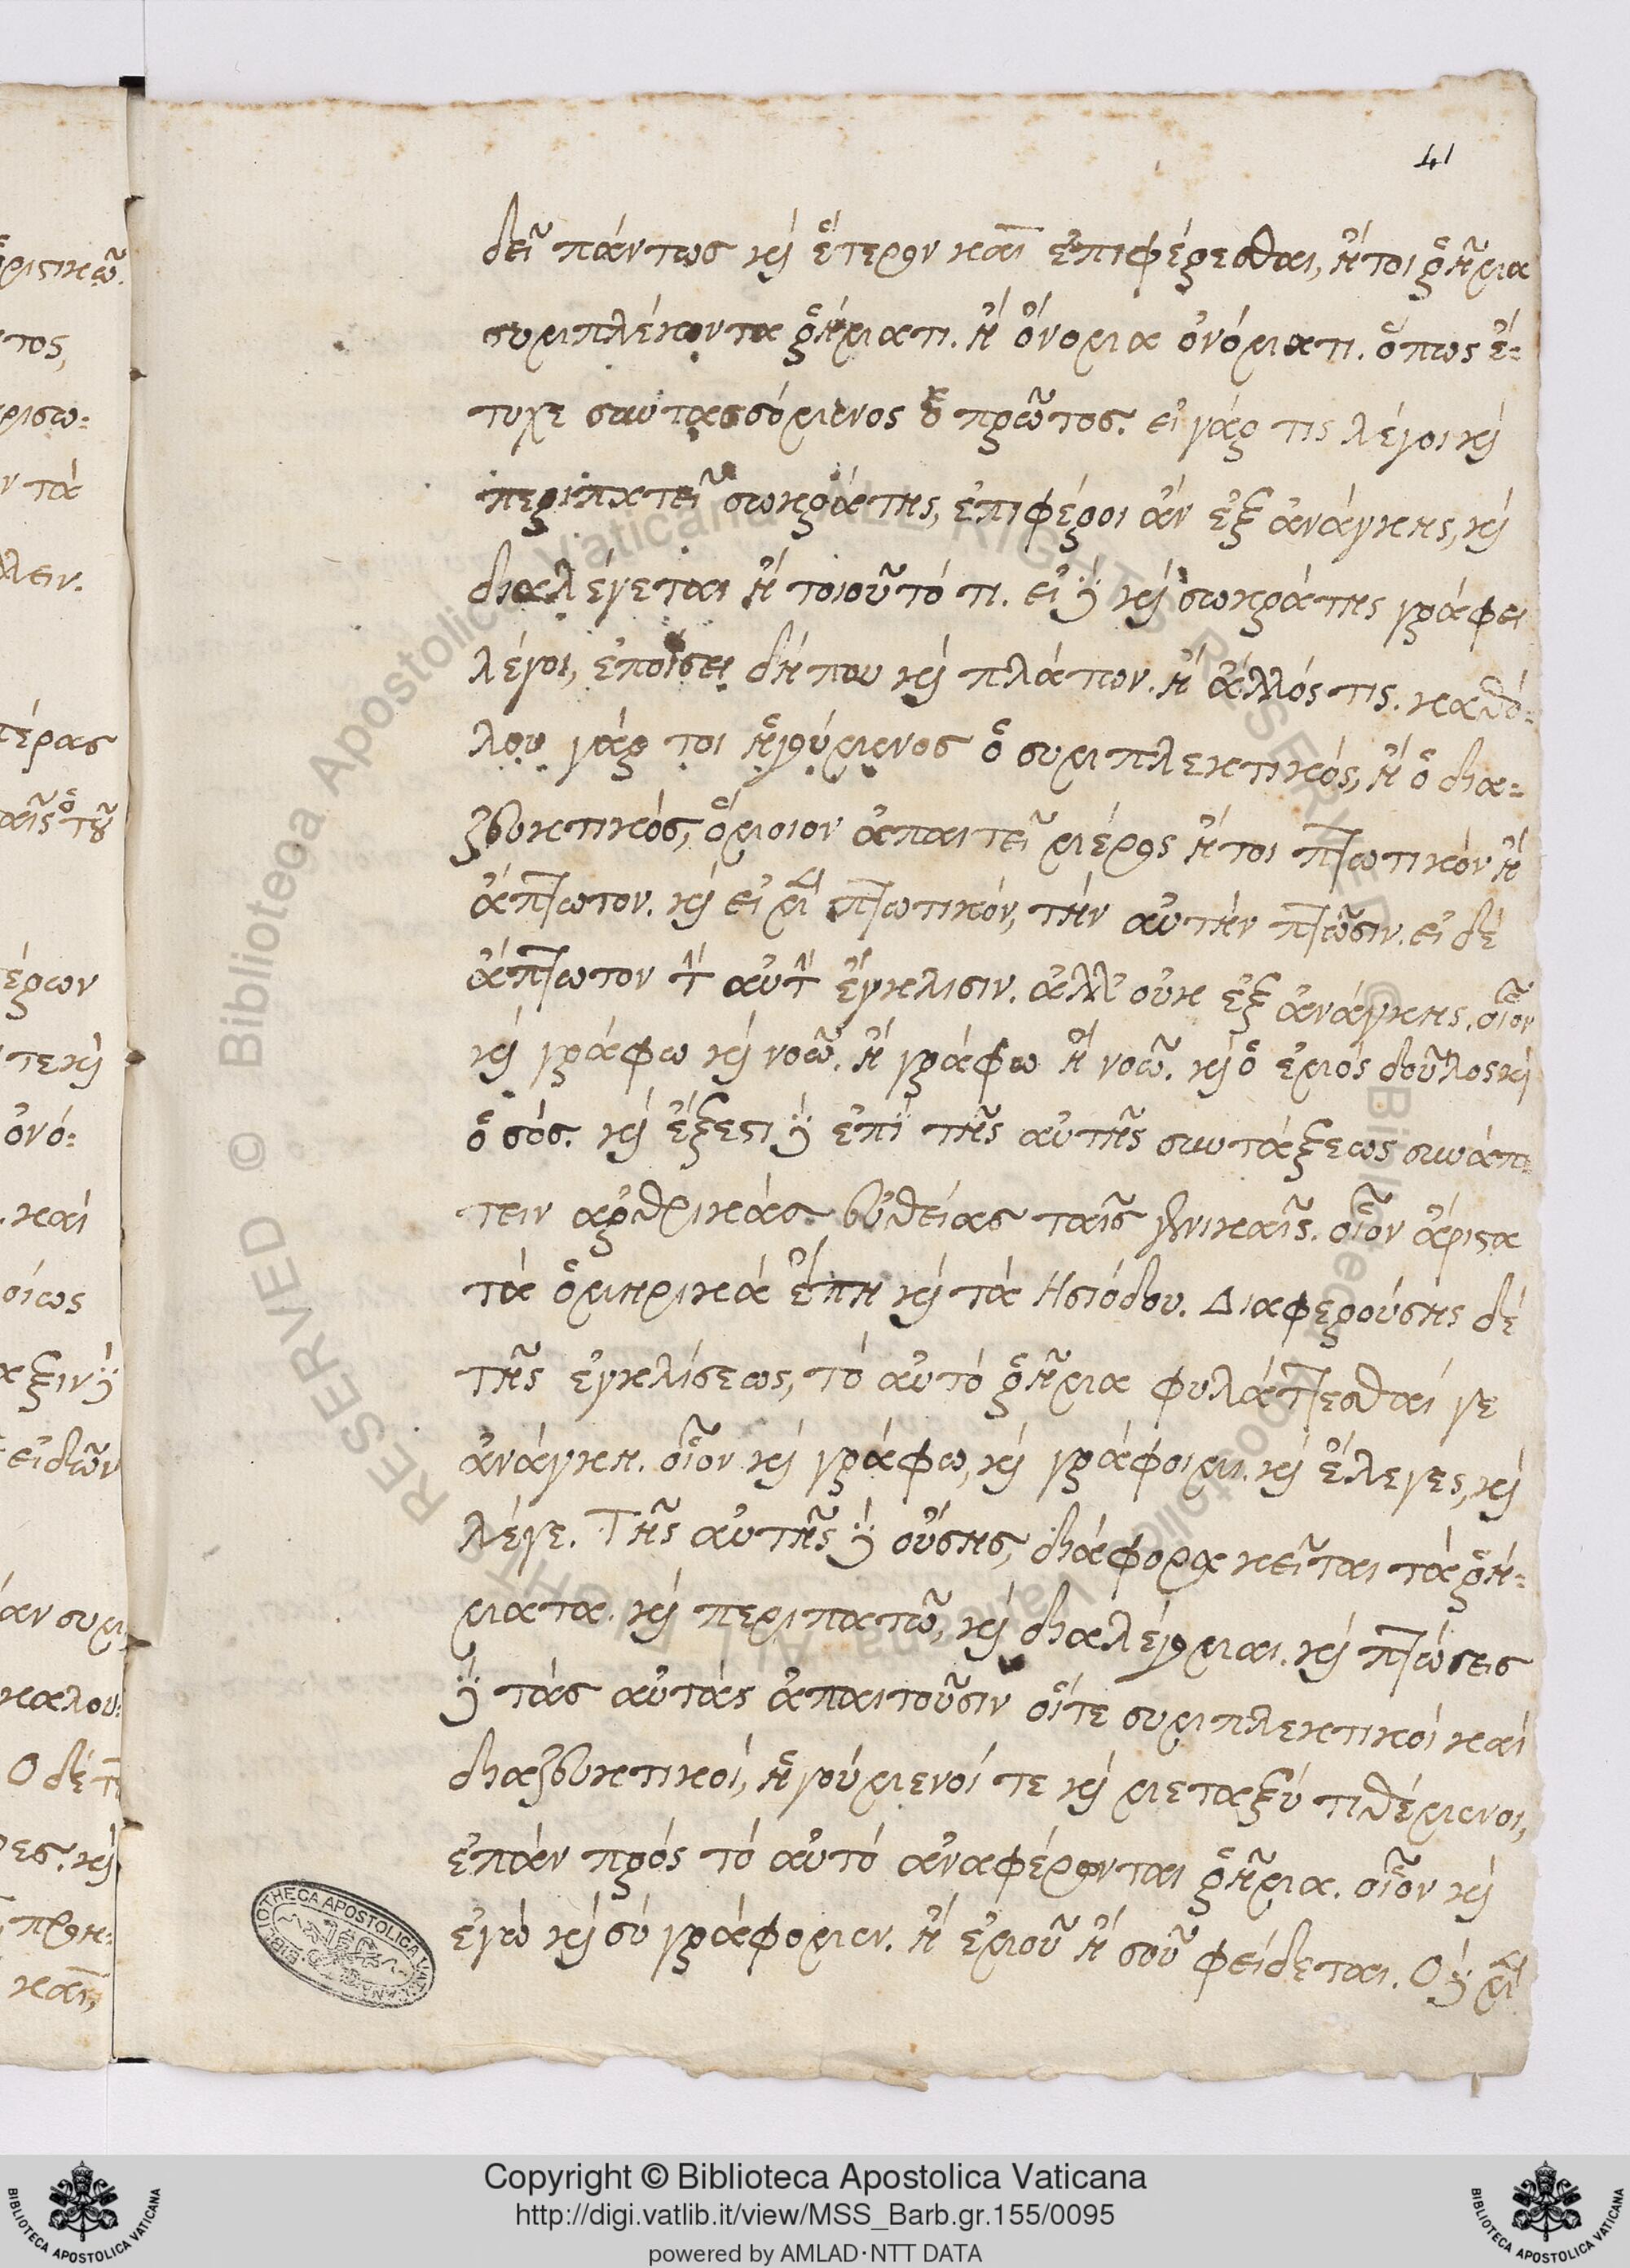 41
δεῖ πάντως κὶ ἕτερον καὶ ἐπιφέρεσθαι, ἤτοι ῥῆμα
συμπλέκοντα ῥήματι. ἢ ὄνομα ὀνόματι. ὅπως ἔ-
τυχε συντασσόμενος ὁ πρῶτος. εἰ γάρ τις λέγοι κὶ
περιπατεῖ σωκράτης, ἐπιφέροι ἂν ἐξ ἀνάγκης, κὶ
διαλέγεται ἢ τοιοῦτό τι. εἰ δὲ κὶ σωκράτης γράφει
λέγοι, ἐποίσει δήπου κὶ πλάτων. ἢ ἄλλός τις. καθό-
λου γάρ τοι ἡγούμενος ὁ συμπλεκτικός, ἢ ὁ δια-
ζευκτικός, ὅμοιον ἀπαιτεῖ μέρος ἤτοι πτωτικὸν ἢ
ἄπτωτον. κὶ εἰ μὲν πτωτικόν, τὴν αὐτὴν πτῶσιν. εἰ δὲ
ἄπτωτον τὴν αὐτὴν ἔγκλισιν. ἀλλ' οὐκ ἐξ ἀνάγκης. οἷον
κὶ γράφω κὶ νοῶ. ἢ γράφω ἢ νοῶ. κὶ ὁ ἐμὸς δοῦλος κὶ
ὁ σός. κὶ ἔξεστι δὲ ἐπὶ τῆς αὐτῆς συντάξεως συνάπ-
τειν ἀρθρικὰς εὐθείας ταῖς γενικαῖς. οἷον ἄριστα
τὰ ὁμηρικὰ ἔπη κὶ τὰ Ἡσιόδου. Διαφερούσης δὲ
τῆς ἐγκλίσεως, τὸ αὐτὸ ῥῆμα φυλάττεσθαί γε
ἀνάγκη. οἷον κὶ γράφω, κὶ γράφοιμι. κὶ ἔλεγες, κὶ
λέγε. Τῆς αὐτῆς δὲ οὔσης, διάφορα κεῖται τὰ ῥή-
ματα. κὶ περιπατῶ, κὶ διαλέγομαι. κὶ πτώσεις
δὲ τὰς αὐτὰς ἀπαιτοῦσιν οἵτε συμπλεκτικοὶ καὶ
διαζευκτικοί, ἡγούμενοί τε κὶ μεταξὺ τιθέμενοι,
ἐπὰν πρὸς τὸ αὐτὸ ἀναφέρονται ῥῆμα. οἷον κὶ
ἐγὼ κὶ σὺ γράφομεν. ἢ ἐμοῦ ἢ σοῦ φείδεται. Ὁ δὲ μὲν
Copyright © Biblioteca Apostolica Vaticana
http://digi.vatlib.it/view/MSS_Barb.gr.155/0095
powered by AMLAD·NTT DATA